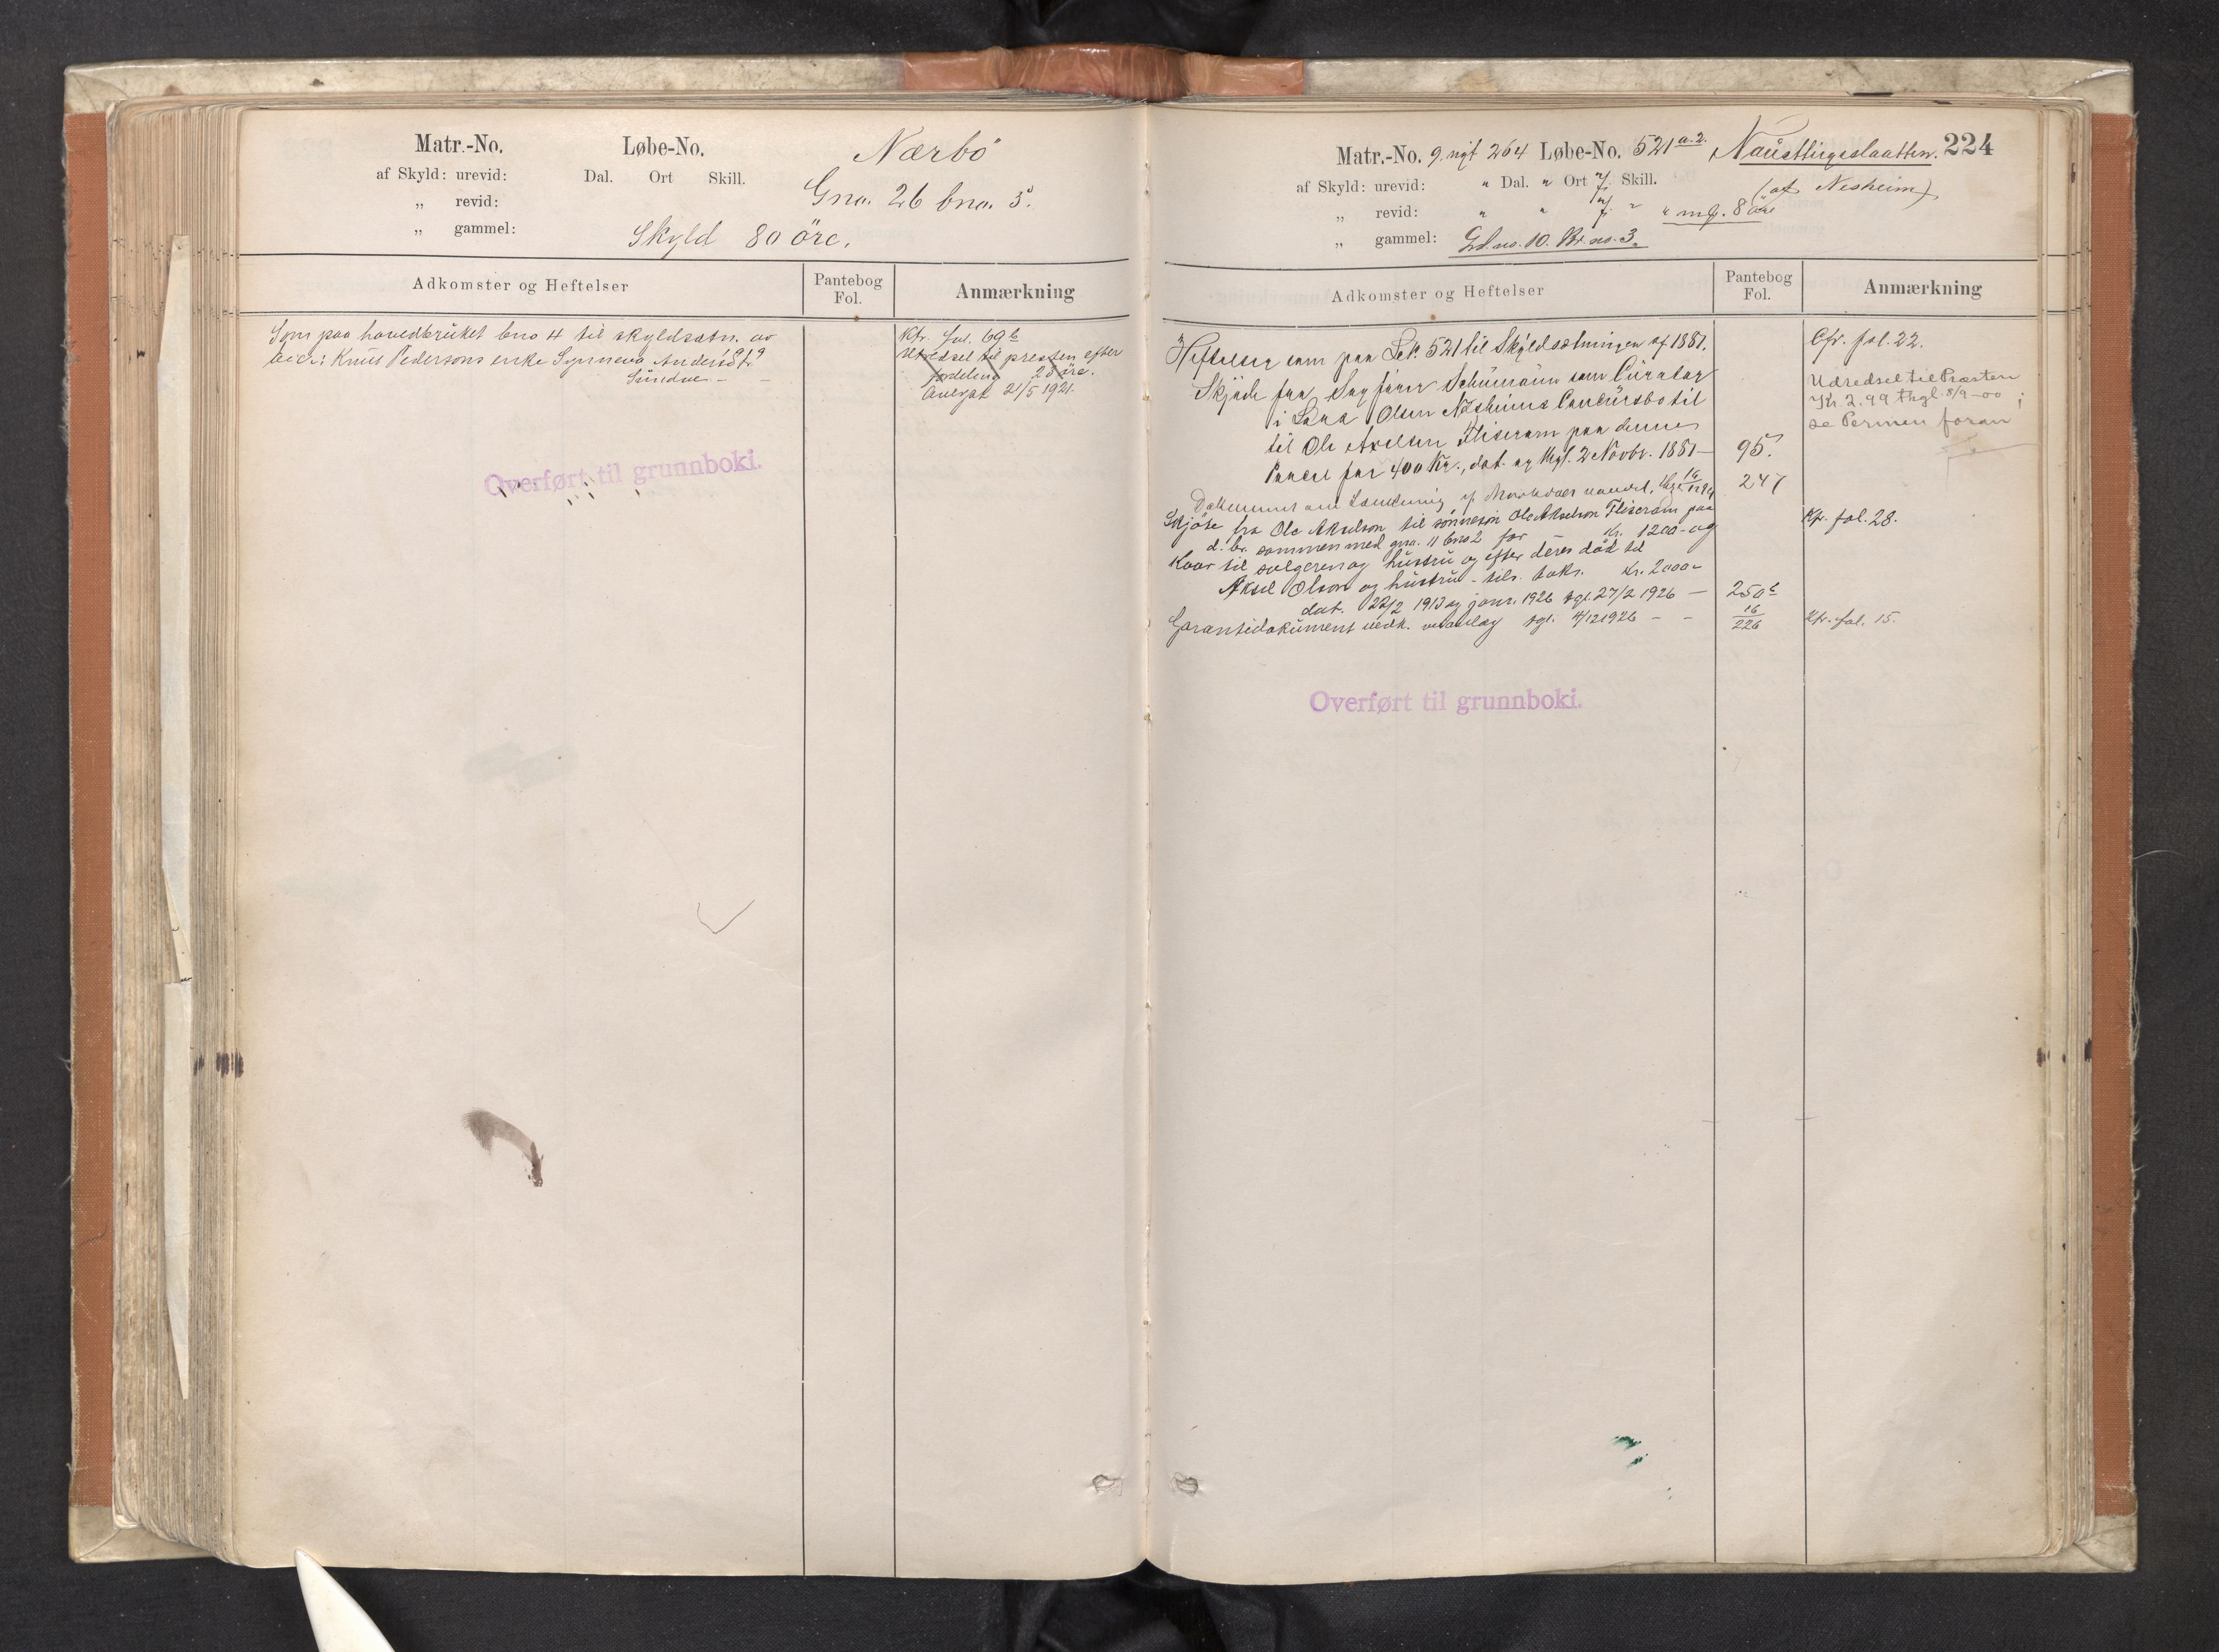 Matr.-No. Løbe-No. Nærbö
af Skyld: urevid: Dal. Ort Skill. Gno. 26 bno. 5.
„ revid:
„ gammel: Skyld 80 öre.
Adkomster og Heftelser Pantebog Fol. Anmærkning
Som paa hovedbruket bno 4 til skyldsætn. av
Knut Pedersons enke Synneva
Kfr. fol. 69b
Utredsel til presten efter
fordeling 28 öre.
Avlyst 21/5 1921.
Overført til grunnboki.
224
Matr.-No. 9. nyt 264 Løbe-No. 521 a.2. Naustteigeslaatten.
af Skyld: urevid: " Dal. " Ort Skill. (af Nesheim)
„ revid: " " " " 8 öre
„ gammel: Gd. no. 10. Br. no. 3.
Adkomster og Heftelser Pantebog Fol. Anmærkning
Heftelser som paa 521 til Skyldsætningen af 1881.
Skjøde fra Sagfører Schümann som Curator
i Lars Olsen Nesheims Concursbo til
til Ole Axelsen Fliseram paa denne
Parcel for 400 Kr., dat. og thgl. 2 Novbr. 1881 — 95.
Dokument om 247
Skjöte fra Ole Akselson til sönnesön Ole Akselson Fliseram paa
d. br. sammen med gno. 11 bno 2 for Kr. 1200 - og
Kaar til sælgeren og hustru og efter deres död til
Aksel Olson og hustru - tils. taks. Kr. 2000 -
dat. 22/2 1913 og janr. 1926 tgl. 27/2 1926 — 250b
Garantidokument vedk. tgl. 4/12 1926 - - 16/226
Cfr. fol. 22.
Udredsel til Præsten
Kr. 2.99 thgl. 8/9-00;
se Permen foran
Kfr. fol. 28.
Kfr. fol. 15.
Overført til grunnboki.